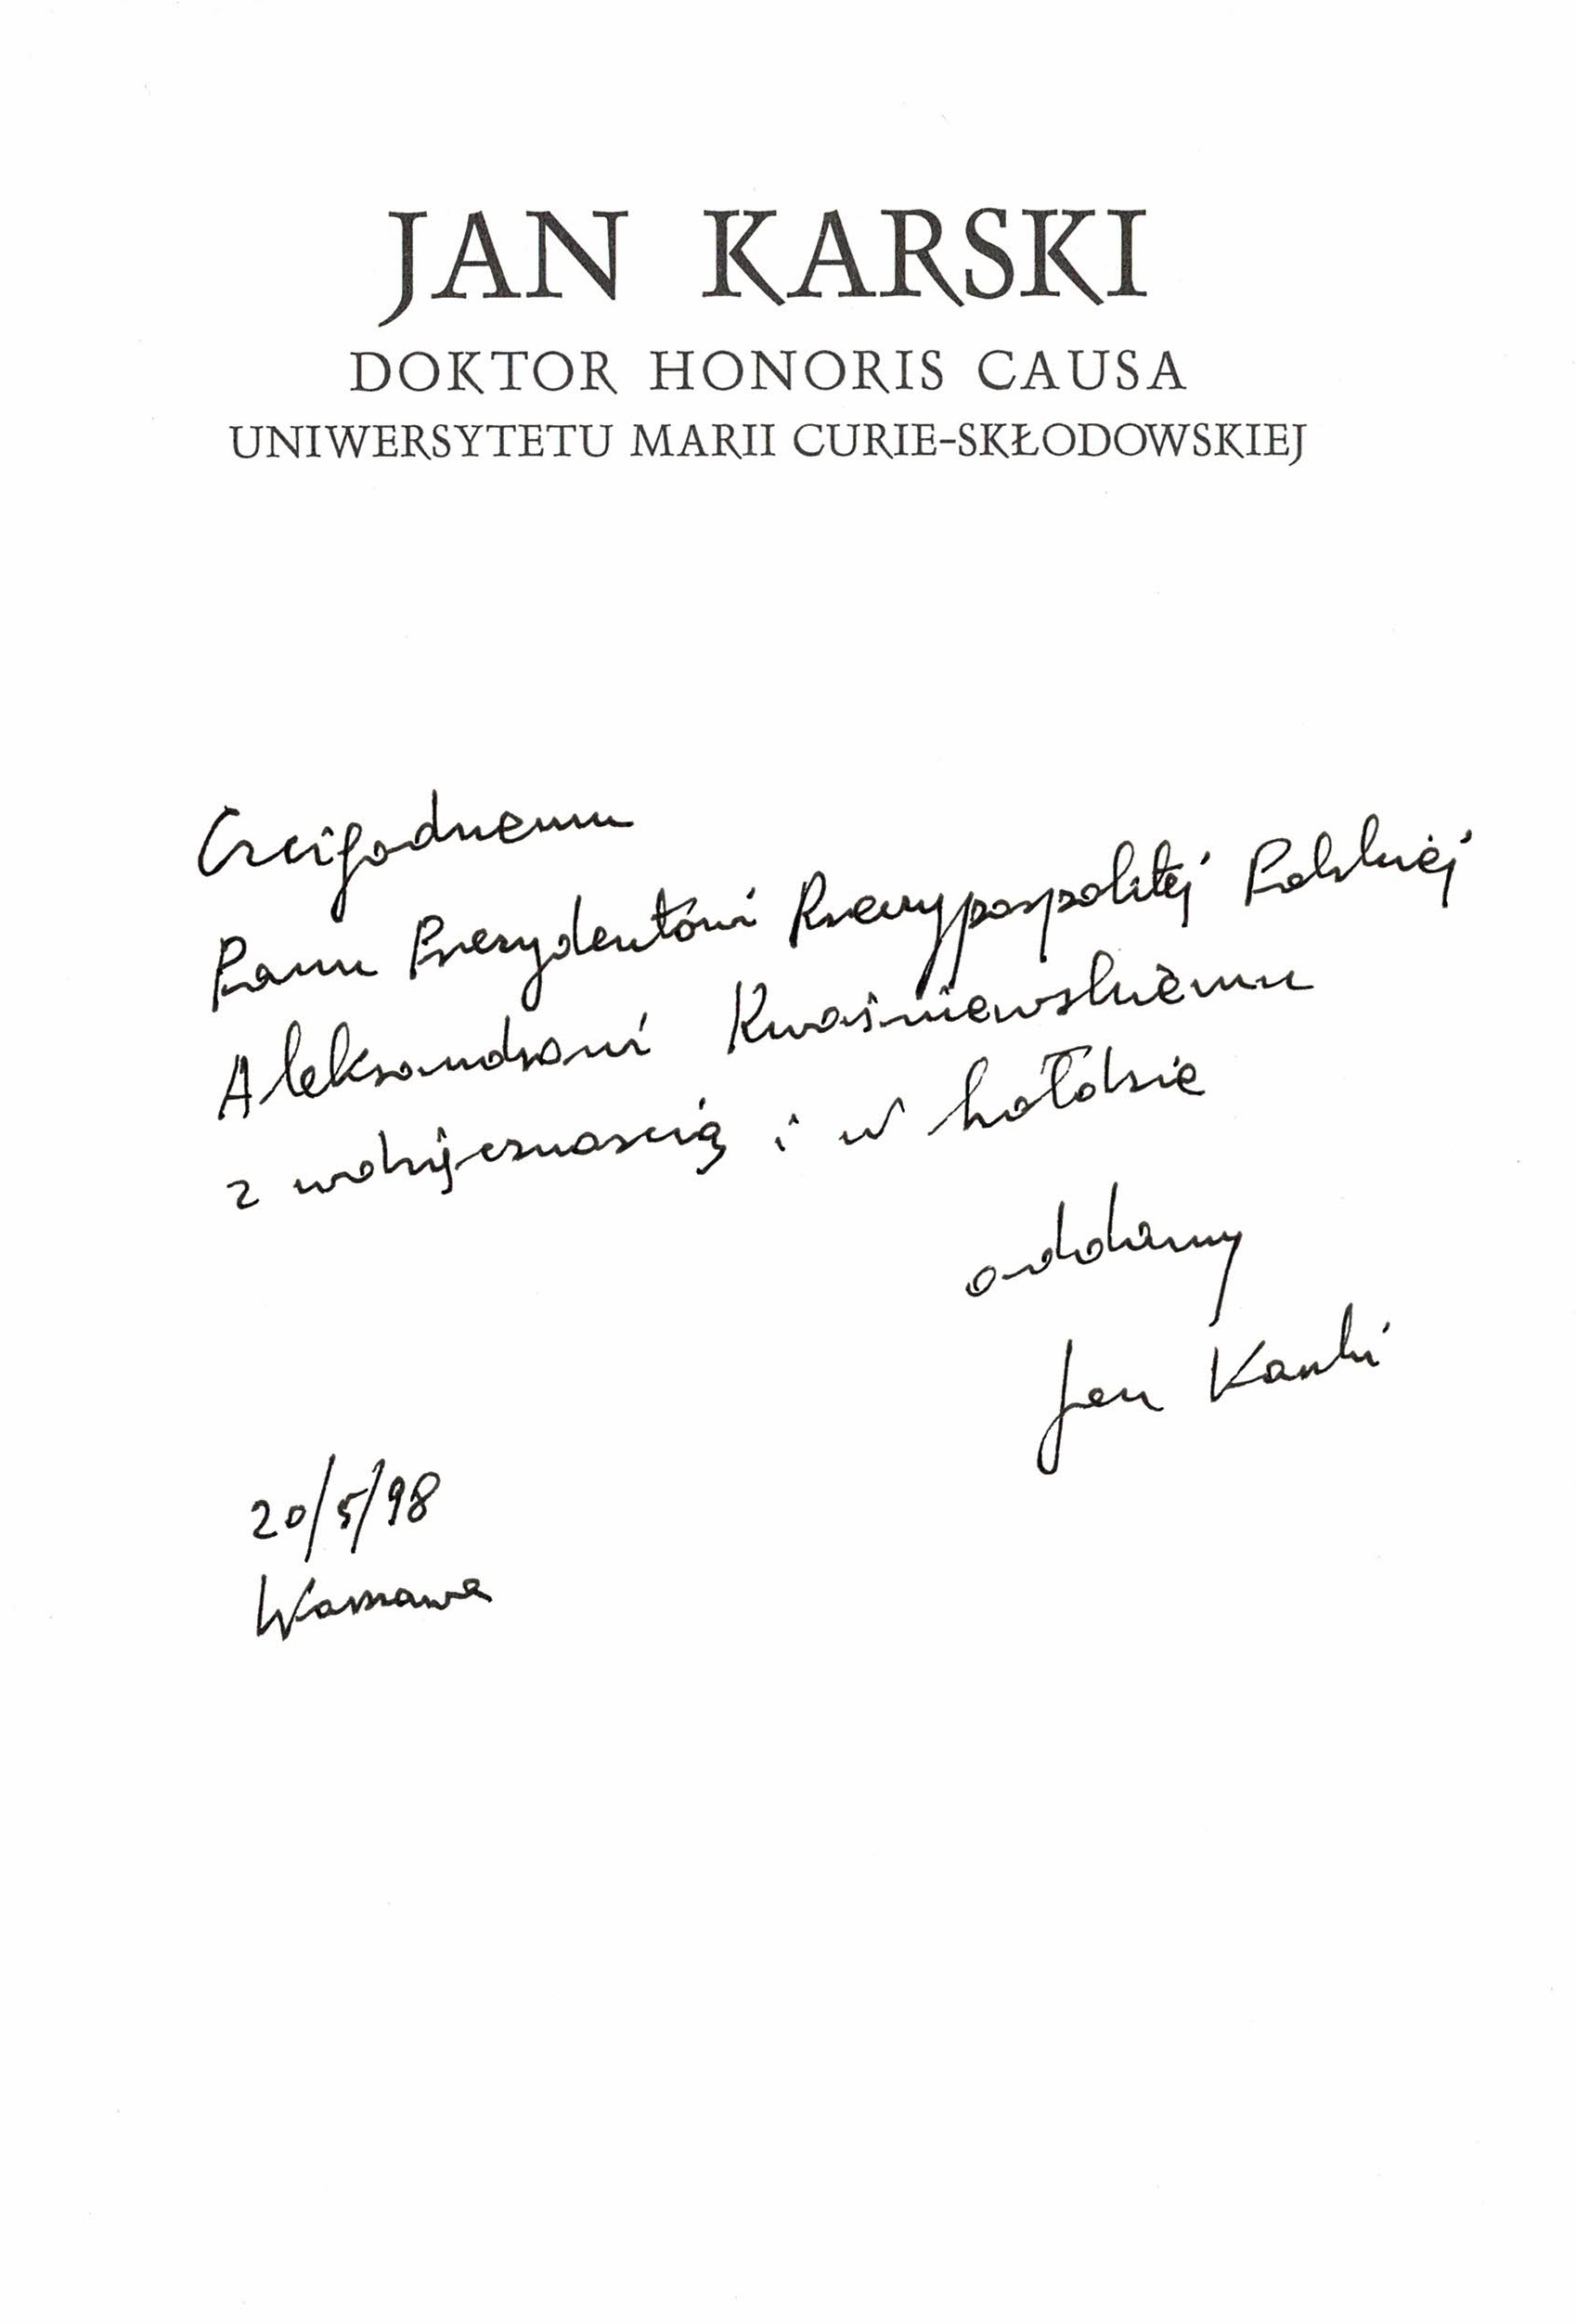 JAN KARSKI
DOKTOR HONORIS CAUSA
UNIWERSYTETU MARII CURIE-SKŁODOWSKIEJ
Czcigodnemu
Panu Prezydentowi Rzeczypospolitej Polskiej
Aleksandrowi Kwaśniewskiemu
z wdzięcznoscią i w hołdzie
oddany
Jan Karski
20/5/98
Warszawa